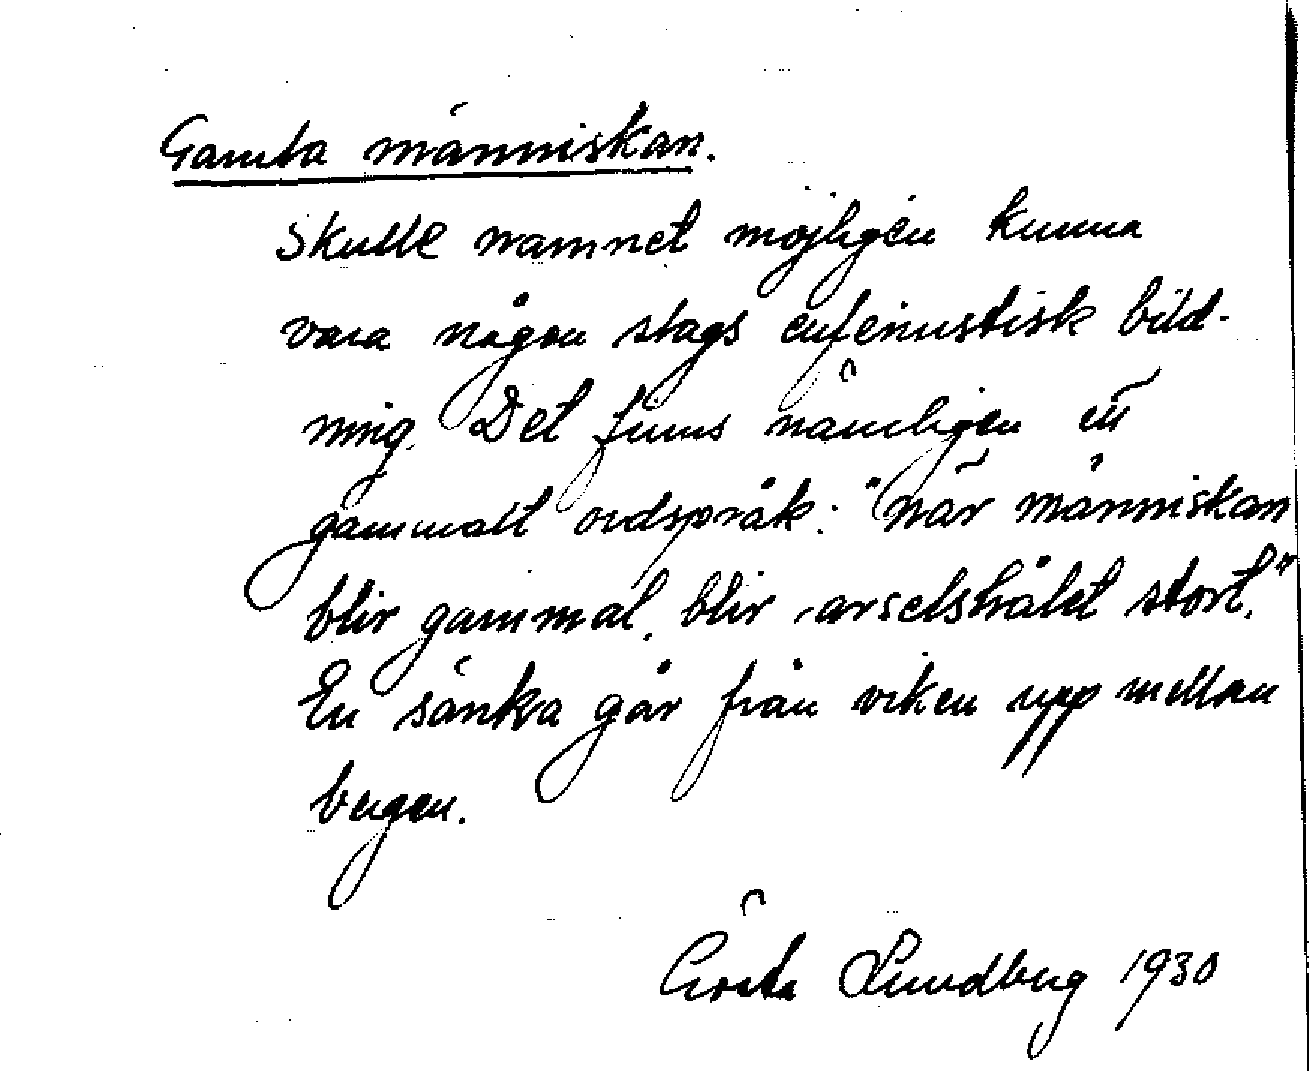 Gamla människan.
Skulle namnet möjligen kunna
vara någon slags eufemistisk bild-
ning. Det finns nämligen ett
gammalt ordspråk: "När människan
blir gammal, blir arselshålet stort."
En sänka går från viken upp mellan
bergen.
Gösta Lundberg 1930